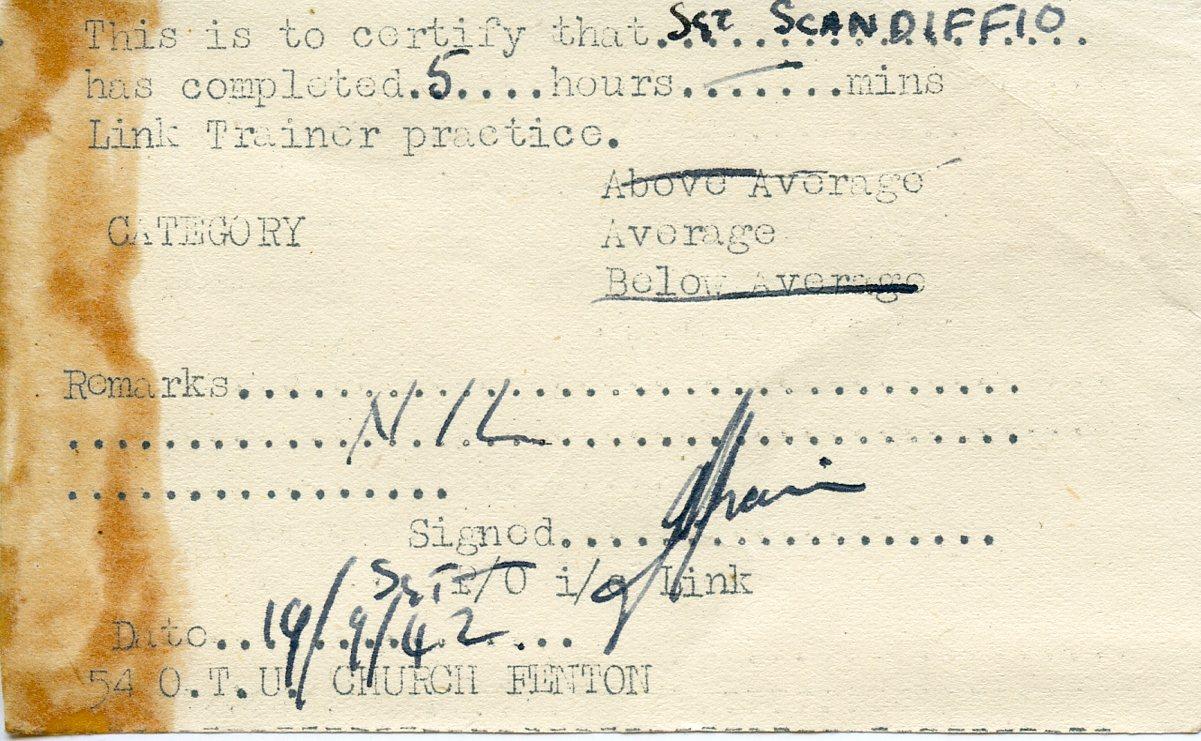 This is to certify that..SGT..SCANDIFFIO..
has completed.5....hours.......mins
Link Trainer practice.
Above Average
CATEGORY Average
Below Average
Remarks........................................
..............NIL..............................
................
Signed....................
SGT P/O i/c Link
Date..19/9/42....
54 O.T.U. CHURCH FENTON